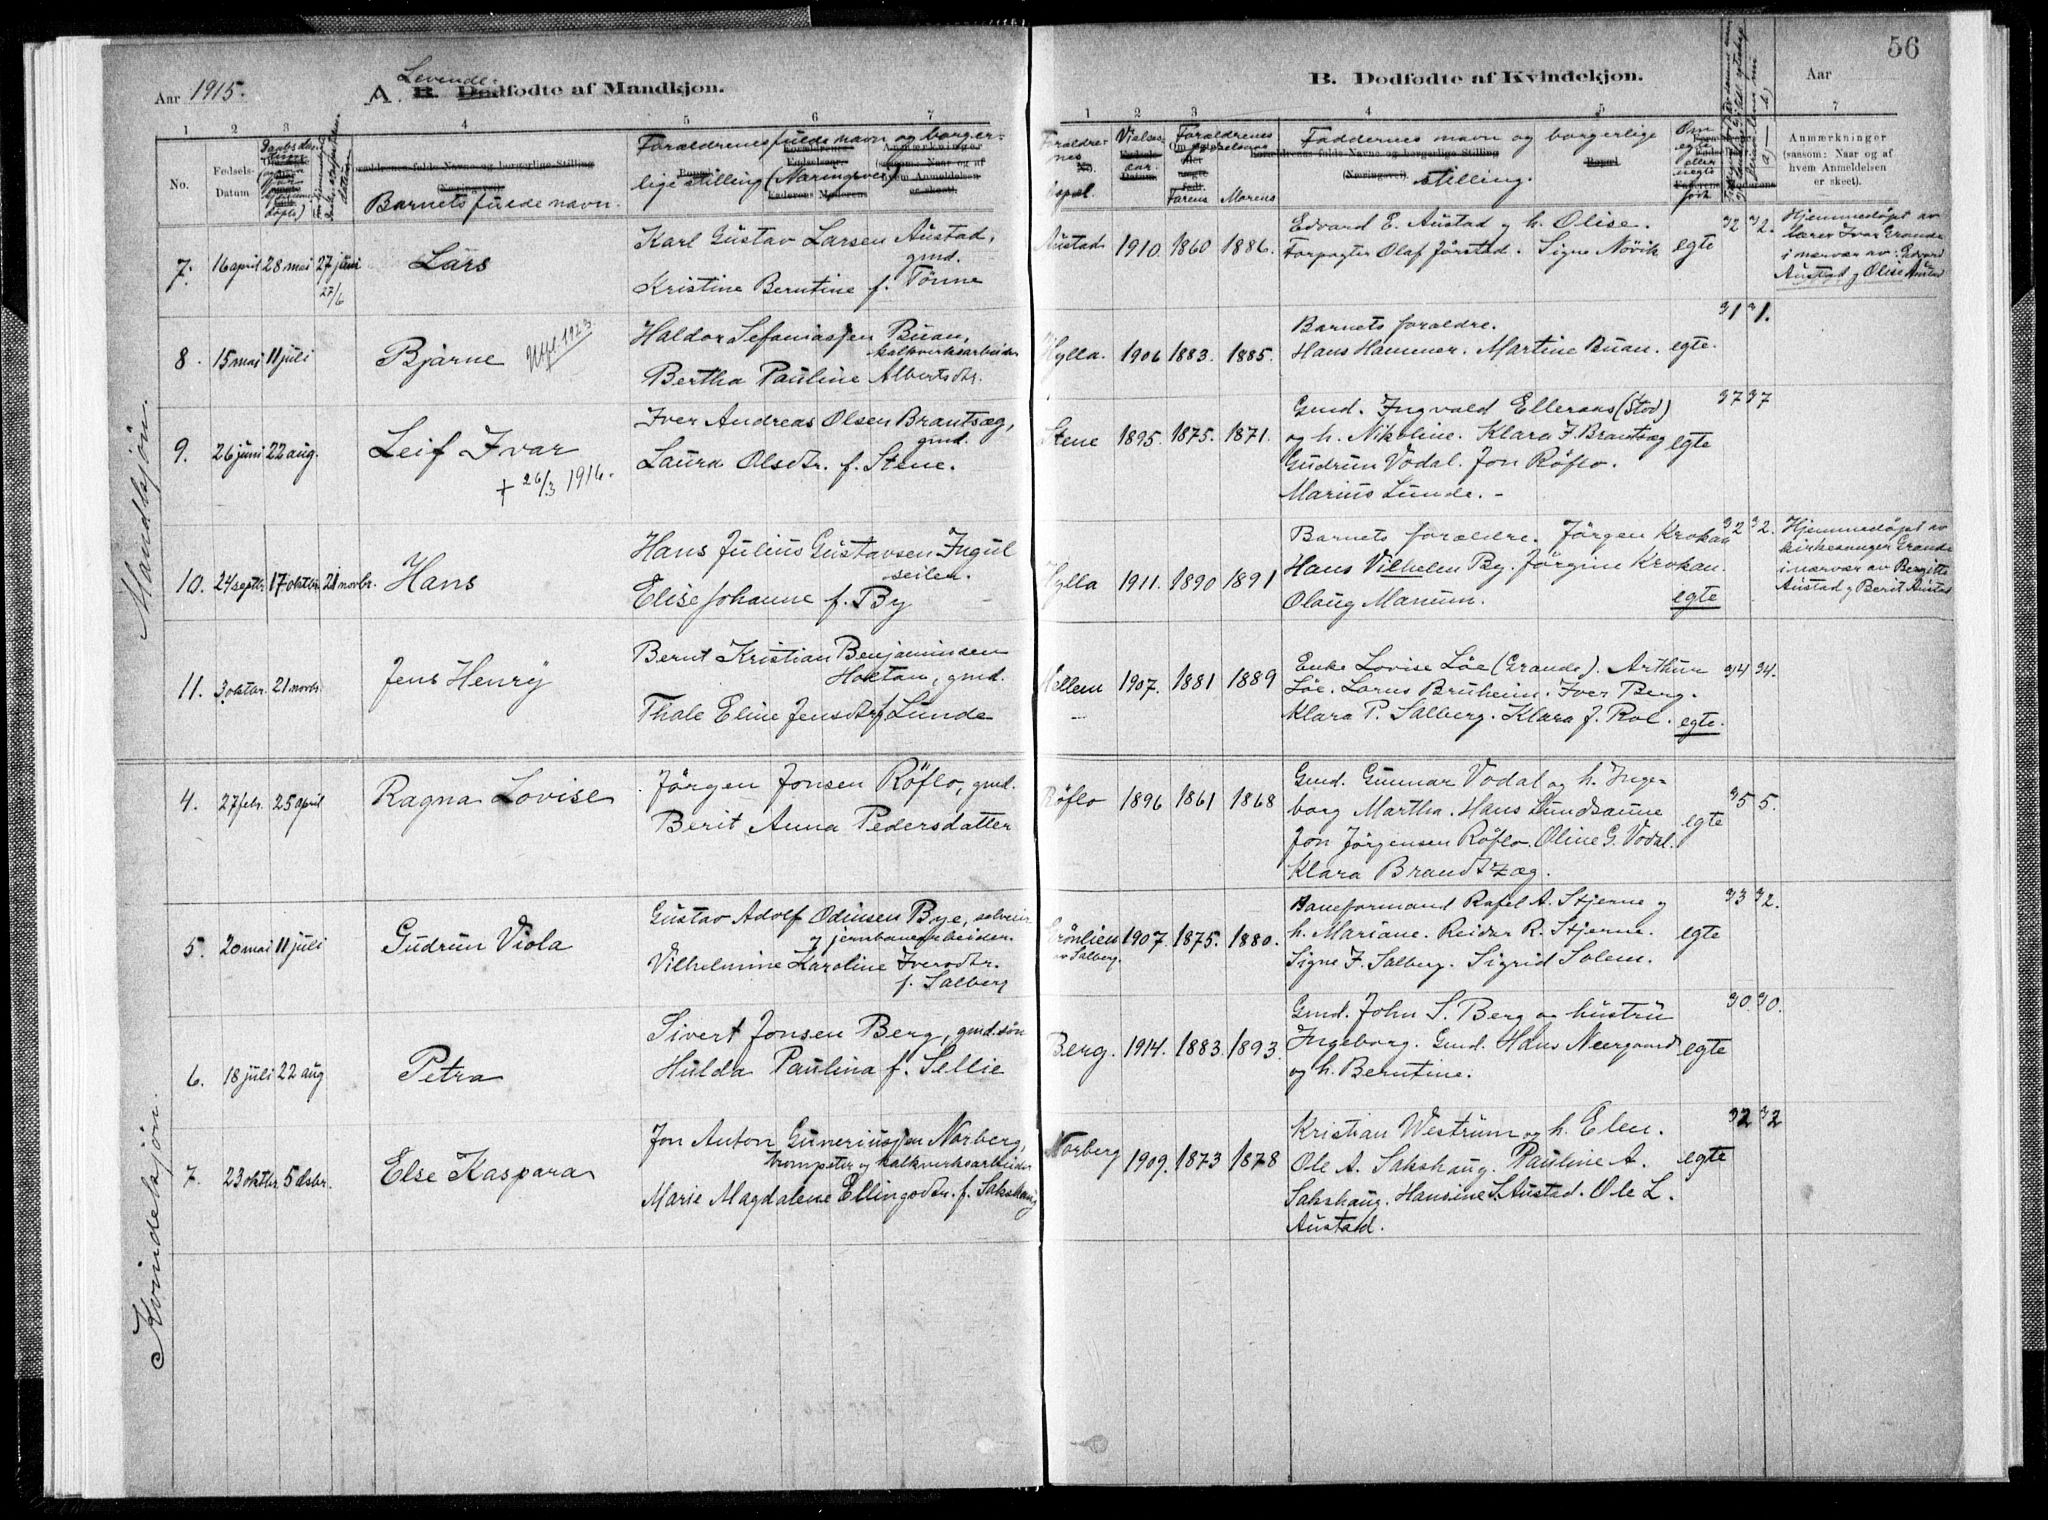 56
Aar 1915.
A. Levende
B. Dødfødte af Mandkjøn.
1 2 3 4 5 6 7
No.
Fødsels-Datum
Barnets fulde navn.
Forældrenes fulde navn og borger-
lige stilling (Næringsvei)
Anmærkninger
(saasom: Naar og af
hvem Anmeldelsen
er skeet).
B. Dødfødte af Kvindekjøn.
Aar
1 2 3 4 5 7
Forældrenes
Faddernes navn og borgerlige
stilling.
Farens Morens
Anmærkninger
(saasom: Naar og af
hvem Anmeldelsen
er skeet).
Mandkjøn.
7. 16 april 28 mai 27 juni
27/6
Lars
Karl Gustav Larsen Austad,
gmd.
Kristine Berntine f. Tønne
Austad 1910. 1860 1886.
Edvard E. Austad og h. Olise.
Forpagter Olaf Jørstad. Signe Növik
egte
32 32.
Hjemmedøpt av
lærer Ivar Grande
i nærvær av: Edvard
Austad og Olise Austad
8. 15 mai 11 juli
Bjarne
Utfl. 1923
Haldor Sefaniassen Buan,
kalkverksarbeider
Bertha Pauline Albertsdtr.
Hylla. 1906 1883. 1885.
Barnets forældre.
Hans Hammer. Martine Buan.
egte.
31 31.
9. 26 juni 22 aug.
Leif Ivar
+ 26/3 1916.
Iver Andreas Olsen Brantsæg,
gmd.
Laura Olsdtr. f. Stene.
Stene 1895. 1875. 1871.
Gmd. Ingvald Elleraas (Stod)
og h. Nikoline. Klara F. Brantsæg
Gudrun Vodal. Jon Röflo.
Marius Lunde. -
egte
37 37
10. 24 septbr. 17 oktbr. 21 novbr.
Hans
Hans Julius Gustavsen Ingul
seiler.
Elise Johanne f. By
Hylla 1911. 1890 1891
Barnets forældre. Jörgen Krokan
Hans Vilhelm By. Jörgine Krokan.
Olaug Manum.
egte
32 32.
Hjemmedøpt av
kirkesanger Grande
i nærvær av Bergitte
Austad og Berit Austad
11. 3 oktbr. 21 novbr.
Jens Henry
Bernt Kristian Benjaminsen
Hoktan, gmd.
Thale Eline Jensdtr f Lunde
Hellem 1907. 1881 1889
Enke Lovise Löe (Grande). Arthur
Löe. Lorns Bruheim. Iver Berg.
Klara P. Salberg. Klara J. Rol.
egte.
34 34.
Kvindekjøn.
4. 27 febr. 25 april
Ragna Lovise
Jörgen Jonsen Röflo, gmd.
Berit Anna Pedersdatter
Röflo 1896 1861 1868
Gmd. Gunnar Vodal og h. Inge-
borg Martha. Hans Lundsaune
Jon Jörgensen Röflo. Oline G. Vodal.
Klara Brandtzæg.
egte
35 5.
5. 20 mai 11 juli
Gudrun Viola
Gustav Adolf Odinsen Bye, selveier
og jernbanearbeider.
Vilhelmine Karoline Iversdtr.
f. Salberg
Grönlien
av Salberg. 1907. 1875. 1880.
Baneformand Rafel A. Stjerne og
h. Mariane. Reidar R. Stjerne.
Signe F. Salberg. Sigrid Solem.
egte
33 32.
6. 18 juli 22 aug
Petra
Sivert Jonsen Berg, gmd.sön
Hulda Paulina f. Sellie
Berg. 1914. 1883. 1893.
Gmd. John S. Berg og hustru
Ingeborg. Gmd. Hans Neergaard
og h. Berntine.
egte
30. 30.
7. 23 oktbr. 5 dsbr.
Else Kaspara
Jon Anton Guneriussen Norberg,
trompeter og kalkverksarbeider
Marie Magdalene Ellingsdtr. f. Sakshaug
Norberg 1909. 1873 1878
Kristian Westrum og h. Elen.
Ole A. Sakshaug. Pauline A.
Sakshaug. Hansine S. Austad. Ole L.
Austad.
egte
32 32